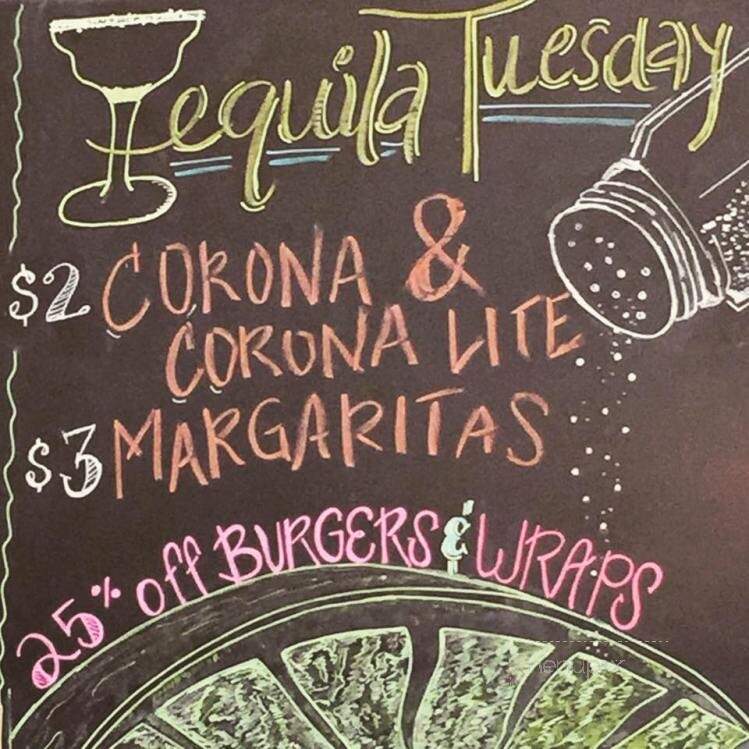 Tequila Tuesday
$2 CORONA &
CORONA LITE
$3 MARGARITAS
25% off BURGERS & WRAPS